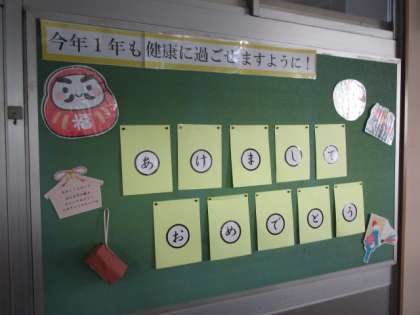 今年1年も健康に過ごせますように!
福
あけまして
おめでとう